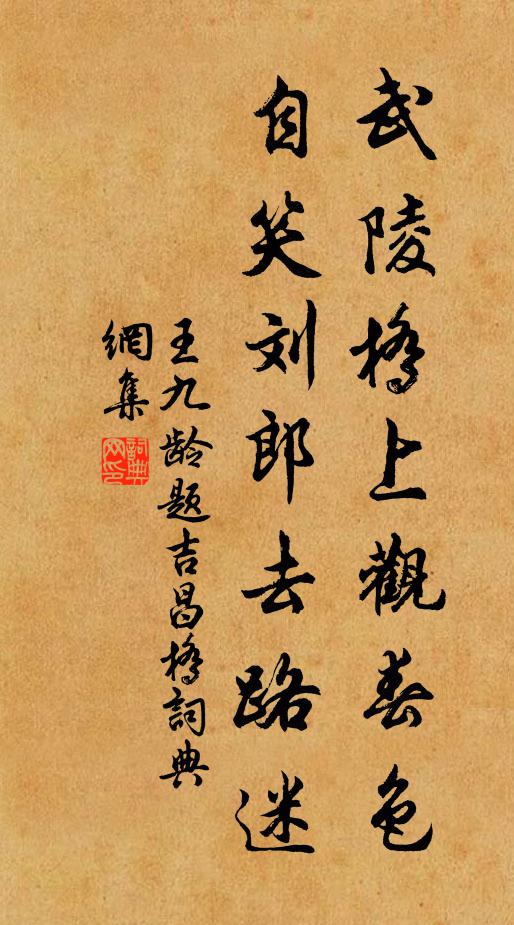 武陵桥上觀春色
自笑刘郎去路迷
王九龄题吉昌桥詞典
網集
詞典网印